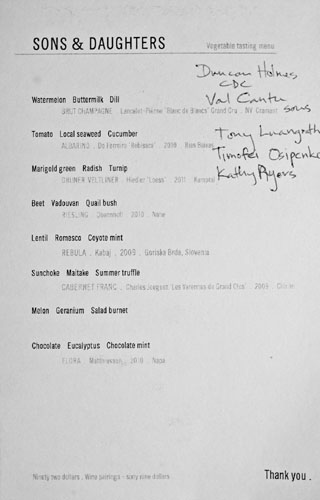 SONS & DAUGHTERS
Vegetable tasting menu
Duncan Holmes
CDC
Val Cantu
sous
Tony
Timofei Osipenko
Kathy Ryers
Watermelon Buttermilk Dill
BRUT CHAMPAGNE . Lancelot-Pienne "Blanc de Blancs" Grand Cru . NV Cramant
Tomato Local seaweed Cucumber
ALBARINO . Do Ferreiro "Rebisaca" . 2010 . Rias Baixas
Marigold green Radish Turnip
GRUNER VELTLINER . Hiedler "Loess" . 2011 .
Beet Vadouvan Quail bush
RIESLING . 2010 . Nahe
Lentil Romesco Coyote mint
REBULA . Kabaj . 2009 . Goriska Brda, Slovenia
Sunchoke Maitake Summer truffle
CABERNET FRANC . Charles Joguet "Les Varennes du Grand Clos" . 2009 . Chinon
Melon Geranium Salad burnet
Chocolate Eucalyptus Chocolate mint
FLORA . . 2010 . Napa
Ninety two dollars . Wine pairings - sixty nine dollars
Thank you .